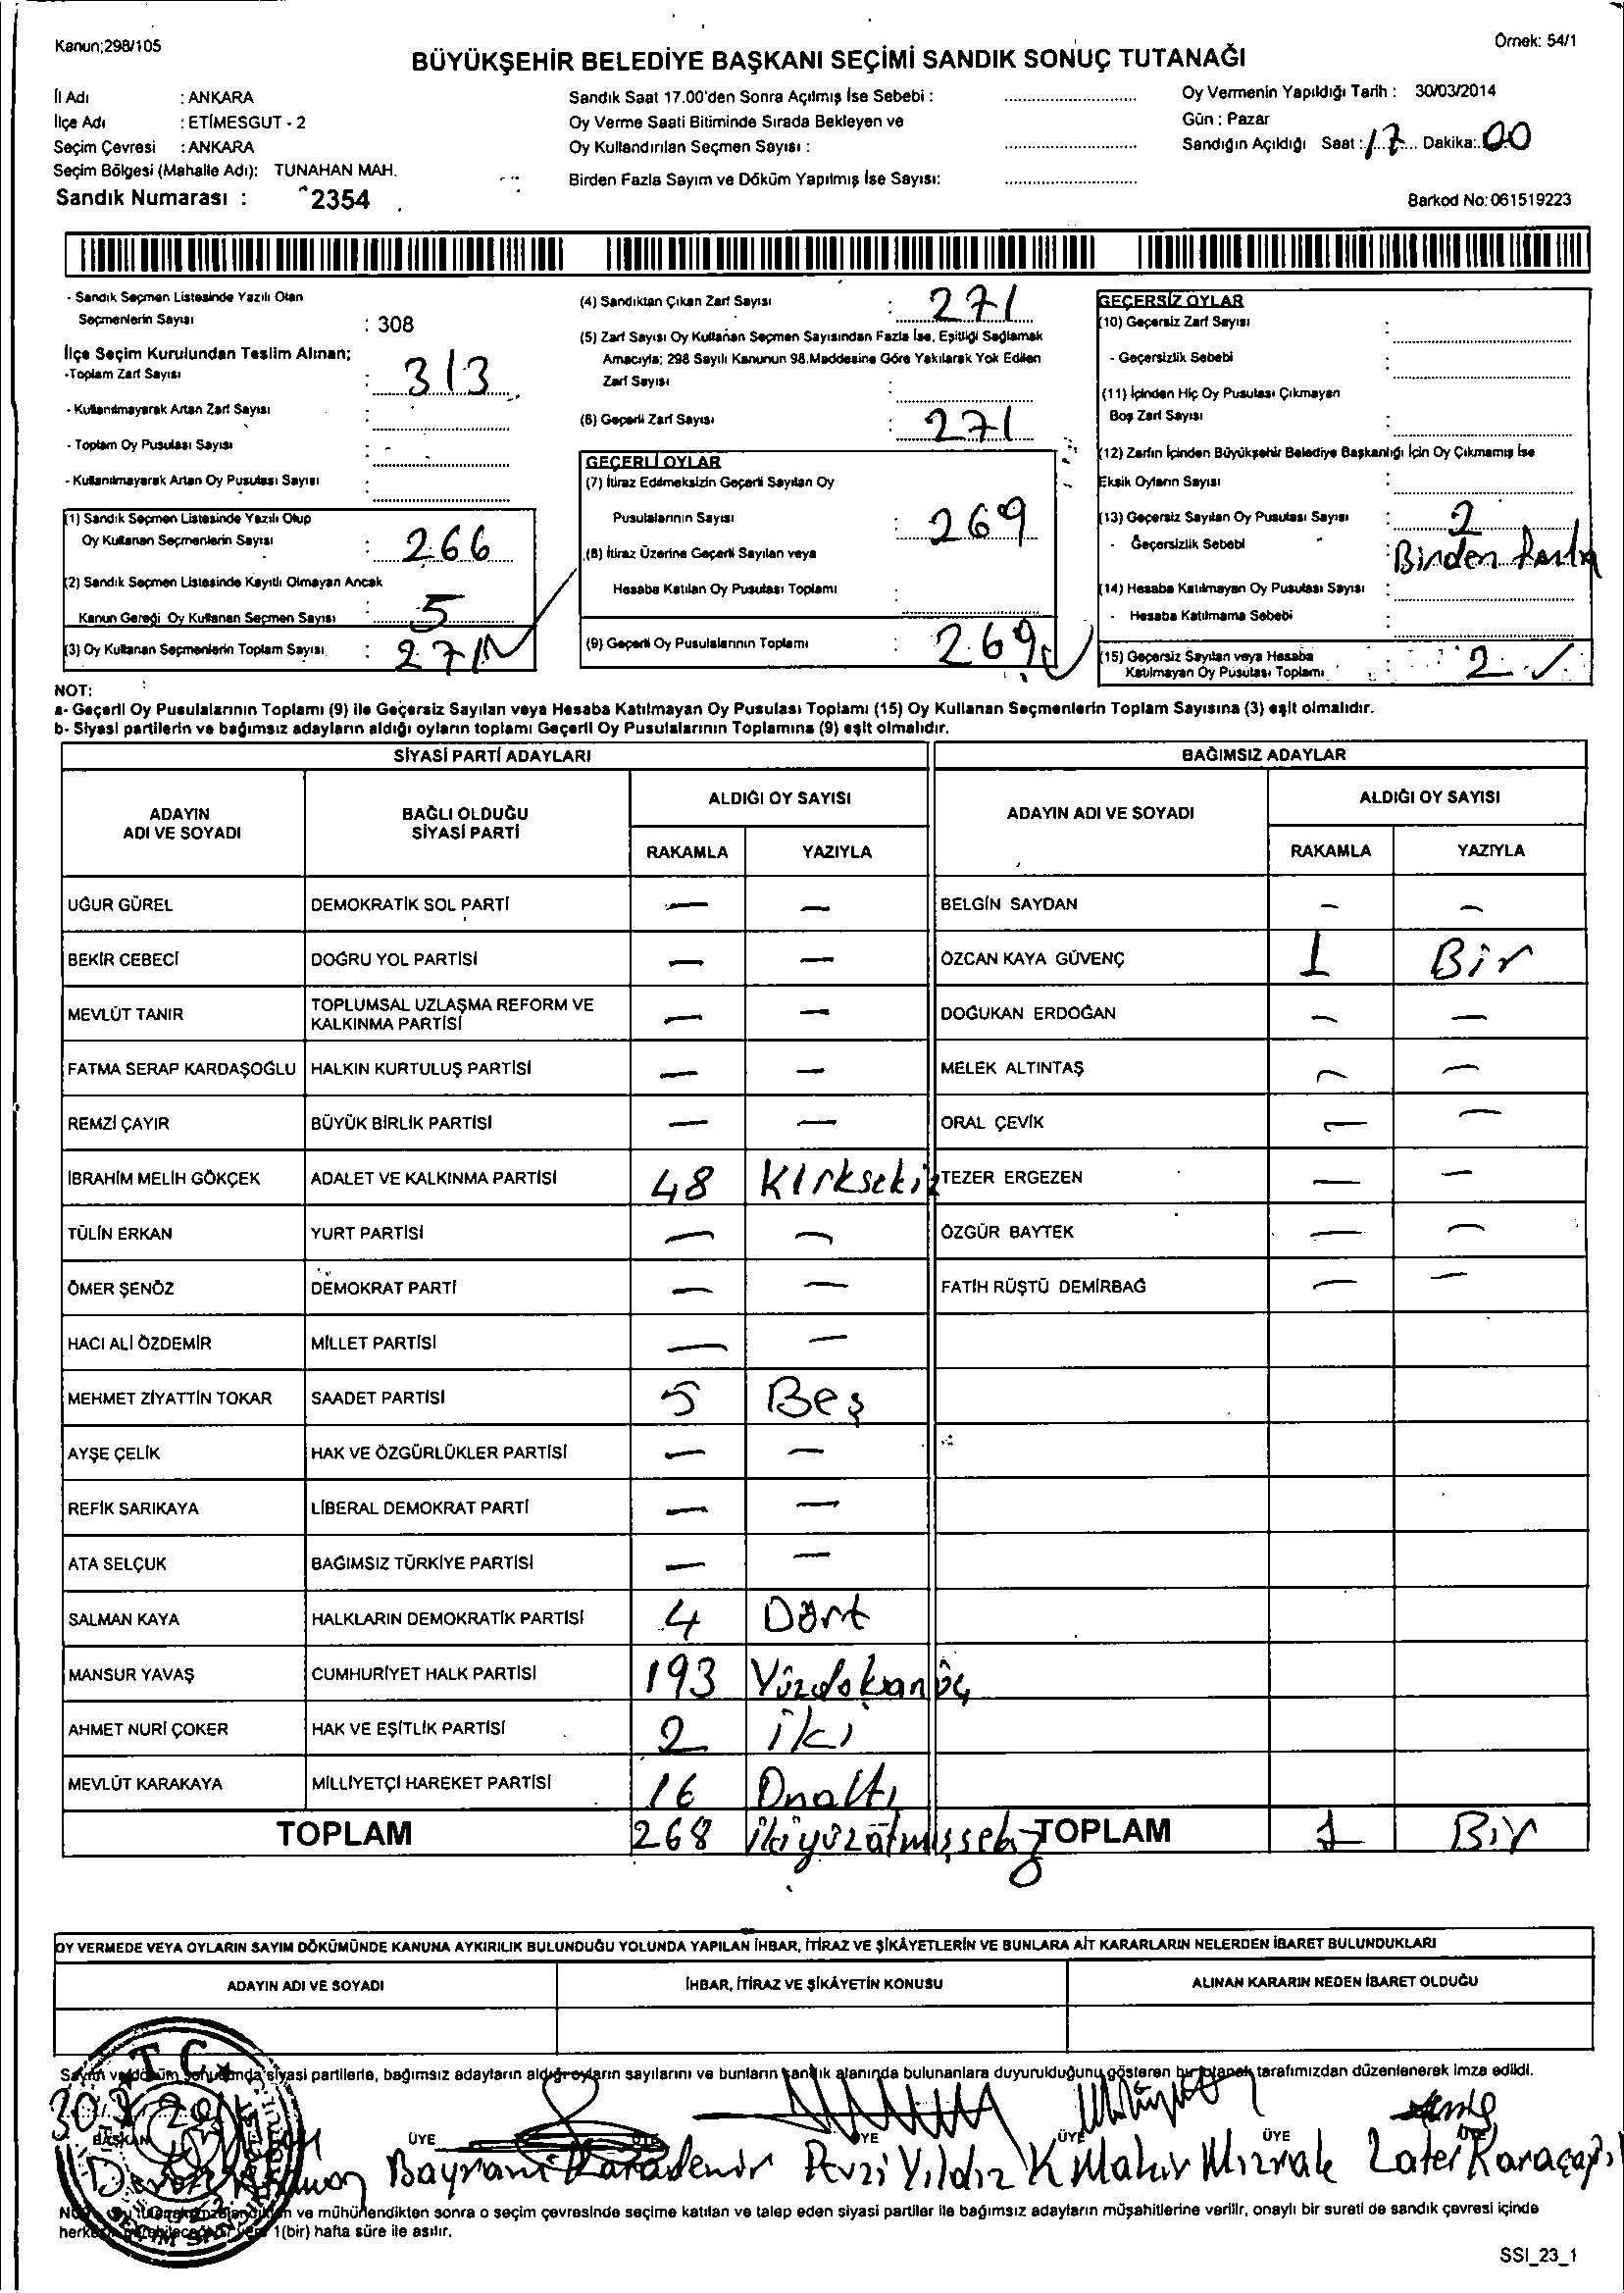 Kanun;298/105
Örnek: 54/1
BÜYÜKŞEHİR BELEDİYE BAŞKANI SEÇİMİ SANDIK SONUÇ TUTANAĞI
İl Adı : ANKARA
İlçe Adı : ETİMESGUT - 2
Seçim Çevresi : ANKARA
Seçim Bölgesi (Mahalle Adı): TUNAHAN MAH.
Sandık Numarası : 2354
Sandık Saat 17.00'den Sonra Açılmış İse Sebebi :
Oy Verme Saati Bitiminde Sırada Bekleyen ve
Oy Kullandırılan Seçmen Sayısı :
Birden Fazla Sayım ve Döküm Yapılmış İse Sayısı:
Oy Vermenin Yapıldığı Tarih : 30/03/2014
Gün : Pazar
Sandığın Açıldığı Saat : 17 Dakika: 00
Barkod No: 061519223
- Sandık Seçmen Listesinde Yazılı Olan
Seçmenlerin Sayısı : 308
İlçe Seçim Kurulundan Teslim Alınan;
-Toplam Zarf Sayısı : 313
- Kullanılmayarak Artan Zarf Sayısı :
- Toplam Oy Pusulası Sayısı :
- Kullanılmayarak Artan Oy Pusulası Sayısı :
(1) Sandık Seçmen Listesinde Yazılı Olup
Oy Kullanan Seçmenlerin Sayısı : 266
(2) Sandık Seçmen Listesinde Kayıtlı Olmayan Ancak
Kanun Gereği Oy Kullanan Seçmen Sayısı : 5
(3) Oy Kullanan Seçmenlerin Toplam Sayısı : 271
(4) Sandıktan Çıkan Zarf Sayısı : 271
(5) Zarf Sayısı Oy Kullanan Seçmen Sayısından Fazla İse, Eşitliği Sağlamak
Amacıyla; 298 Sayılı Kanunun 98.Maddesine Göre Yakılarak Yok Edilen
Zarf Sayısı :
(6) Geçerli Zarf Sayısı : 271
GEÇERLİ OYLAR
(7) İtiraz Edilmeksizin Geçerli Sayılan Oy
Pusulalarının Sayısı : 269
(8) İtiraz Üzerine Geçerli Sayılan veya
Hesaba Katılan Oy Pusulası Toplamı :
(9) Geçerli Oy Pusulalarının Toplamı : 269
GEÇERSİZ OYLAR
(10) Geçersiz Zarf Sayısı :
- Geçersizlik Sebebi :
(11) İçinden Hiç Oy Pusulası Çıkmayan
Boş Zarf Sayısı :
(12) Zarfın İçinden Büyükşehir Belediye Başkanlığı İçin Oy Çıkmamış İse
Eksik Oyların Sayısı :
(13) Geçersiz Sayılan Oy Pusulası Sayısı : 2
- Geçersizlik Sebebi : Birden Fazla
(14) Hesaba Katılmayan Oy Pusulası Sayısı :
- Hesaba Katılmama Sebebi :
(15) Geçersiz Sayılan veya Hesaba
Katılmayan Oy Pusulası Toplamı : 2
NOT:
a- Geçerli Oy Pusulalarının Toplamı (9) ile Geçersiz Sayılan veya Hesaba Katılmayan Oy Pusulası Toplamı (15) Oy Kullanan Seçmenlerin Toplam Sayısına (3) eşit olmalıdır.
b- Siyasi partilerin ve bağımsız adayların aldığı oyların toplamı Geçerli Oy Pusulalarının Toplamına (9) eşit olmalıdır.
SİYASİ PARTİ ADAYLARI
BAĞIMSIZ ADAYLAR
ADAYIN ADI VE SOYADI
BAĞLI OLDUĞU SİYASİ PARTİ
ALDIĞI OY SAYISI
RAKAMLA YAZIYLA
ADAYIN ADI VE SOYADI
ALDIĞI OY SAYISI
RAKAMLA YAZIYLA
UĞUR GÜREL DEMOKRATİK SOL PARTİ — — BELGİN SAYDAN — —
BEKİR CEBECİ DOĞRU YOL PARTİSİ — — ÖZCAN KAYA GÜVENÇ 1 Bir
MEVLÜT TANIR TOPLUMSAL UZLAŞMA REFORM VE KALKINMA PARTİSİ — — DOĞUKAN ERDOĞAN — —
FATMA SERAP KARDAŞOĞLU HALKIN KURTULUŞ PARTİSİ — — MELEK ALTINTAŞ — —
REMZİ ÇAYIR BÜYÜK BİRLİK PARTİSİ — — ORAL ÇEVİK — —
İBRAHİM MELİH GÖKÇEK ADALET VE KALKINMA PARTİSİ 48 Kırksekiz TEZER ERGEZEN — —
TÜLİN ERKAN YURT PARTİSİ — — ÖZGÜR BAYTEK — —
ÖMER ŞENÖZ DEMOKRAT PARTİ — — FATİH RÜŞTÜ DEMİRBAĞ — —
HACI ALİ ÖZDEMİR MİLLET PARTİSİ — —
MEHMET ZİYATTİN TOKAR SAADET PARTİSİ 5 Beş
AYŞE ÇELİK HAK VE ÖZGÜRLÜKLER PARTİSİ — —
REFİK SARIKAYA LİBERAL DEMOKRAT PARTİ — —
ATA SELÇUK BAĞIMSIZ TÜRKİYE PARTİSİ — —
SALMAN KAYA HALKLARIN DEMOKRATİK PARTİSİ 4 Dört
MANSUR YAVAŞ CUMHURİYET HALK PARTİSİ 193 Yüzdoksanüç
AHMET NURİ ÇOKER HAK VE EŞİTLİK PARTİSİ 2 iki
MEVLÜT KARAKAYA MİLLİYETÇİ HAREKET PARTİSİ 16 Onaltı
TOPLAM 268 ikiyüzatmışsekiz TOPLAM 1 Bir
OY VERMEDE VEYA OYLARIN SAYIM DÖKÜMÜNDE KANUNA AYKIRILIK BULUNDUĞU YOLUNDA YAPILAN İHBAR, İTİRAZ VE ŞİKÂYETLERİN VE BUNLARA AİT KARARLARIN NELERDEN İBARET BULUNDUKLARI
ADAYIN ADI VE SOYADI İHBAR, İTİRAZ VE ŞİKÂYETİN KONUSU ALINAN KARARIN NEDEN İBARET OLDUĞU
Sayım ve döküm sonucunda siyasi partilerle, bağımsız adayların aldığı oyların sayılarını ve bunların sandık alanında bulunanlara duyurulduğunu gösteren bu tutanak tarafımızdan düzenlenerek imza edildi.
T.C.
BAŞKAN ÜYE ÜYE ÜYE ÜYE
Bayram Karademir Fevzi Yıldız K Mahir Mızrak Zafer Karaçayı
ve mühürlendikten sonra o seçim çevresinde seçime katılan ve talep eden siyasi partiler ile bağımsız adayların müşahitlerine verilir, onaylı bir sureti de sandık çevresi içinde
1(bir) hafta süre ile asılır.
SSI_23_1